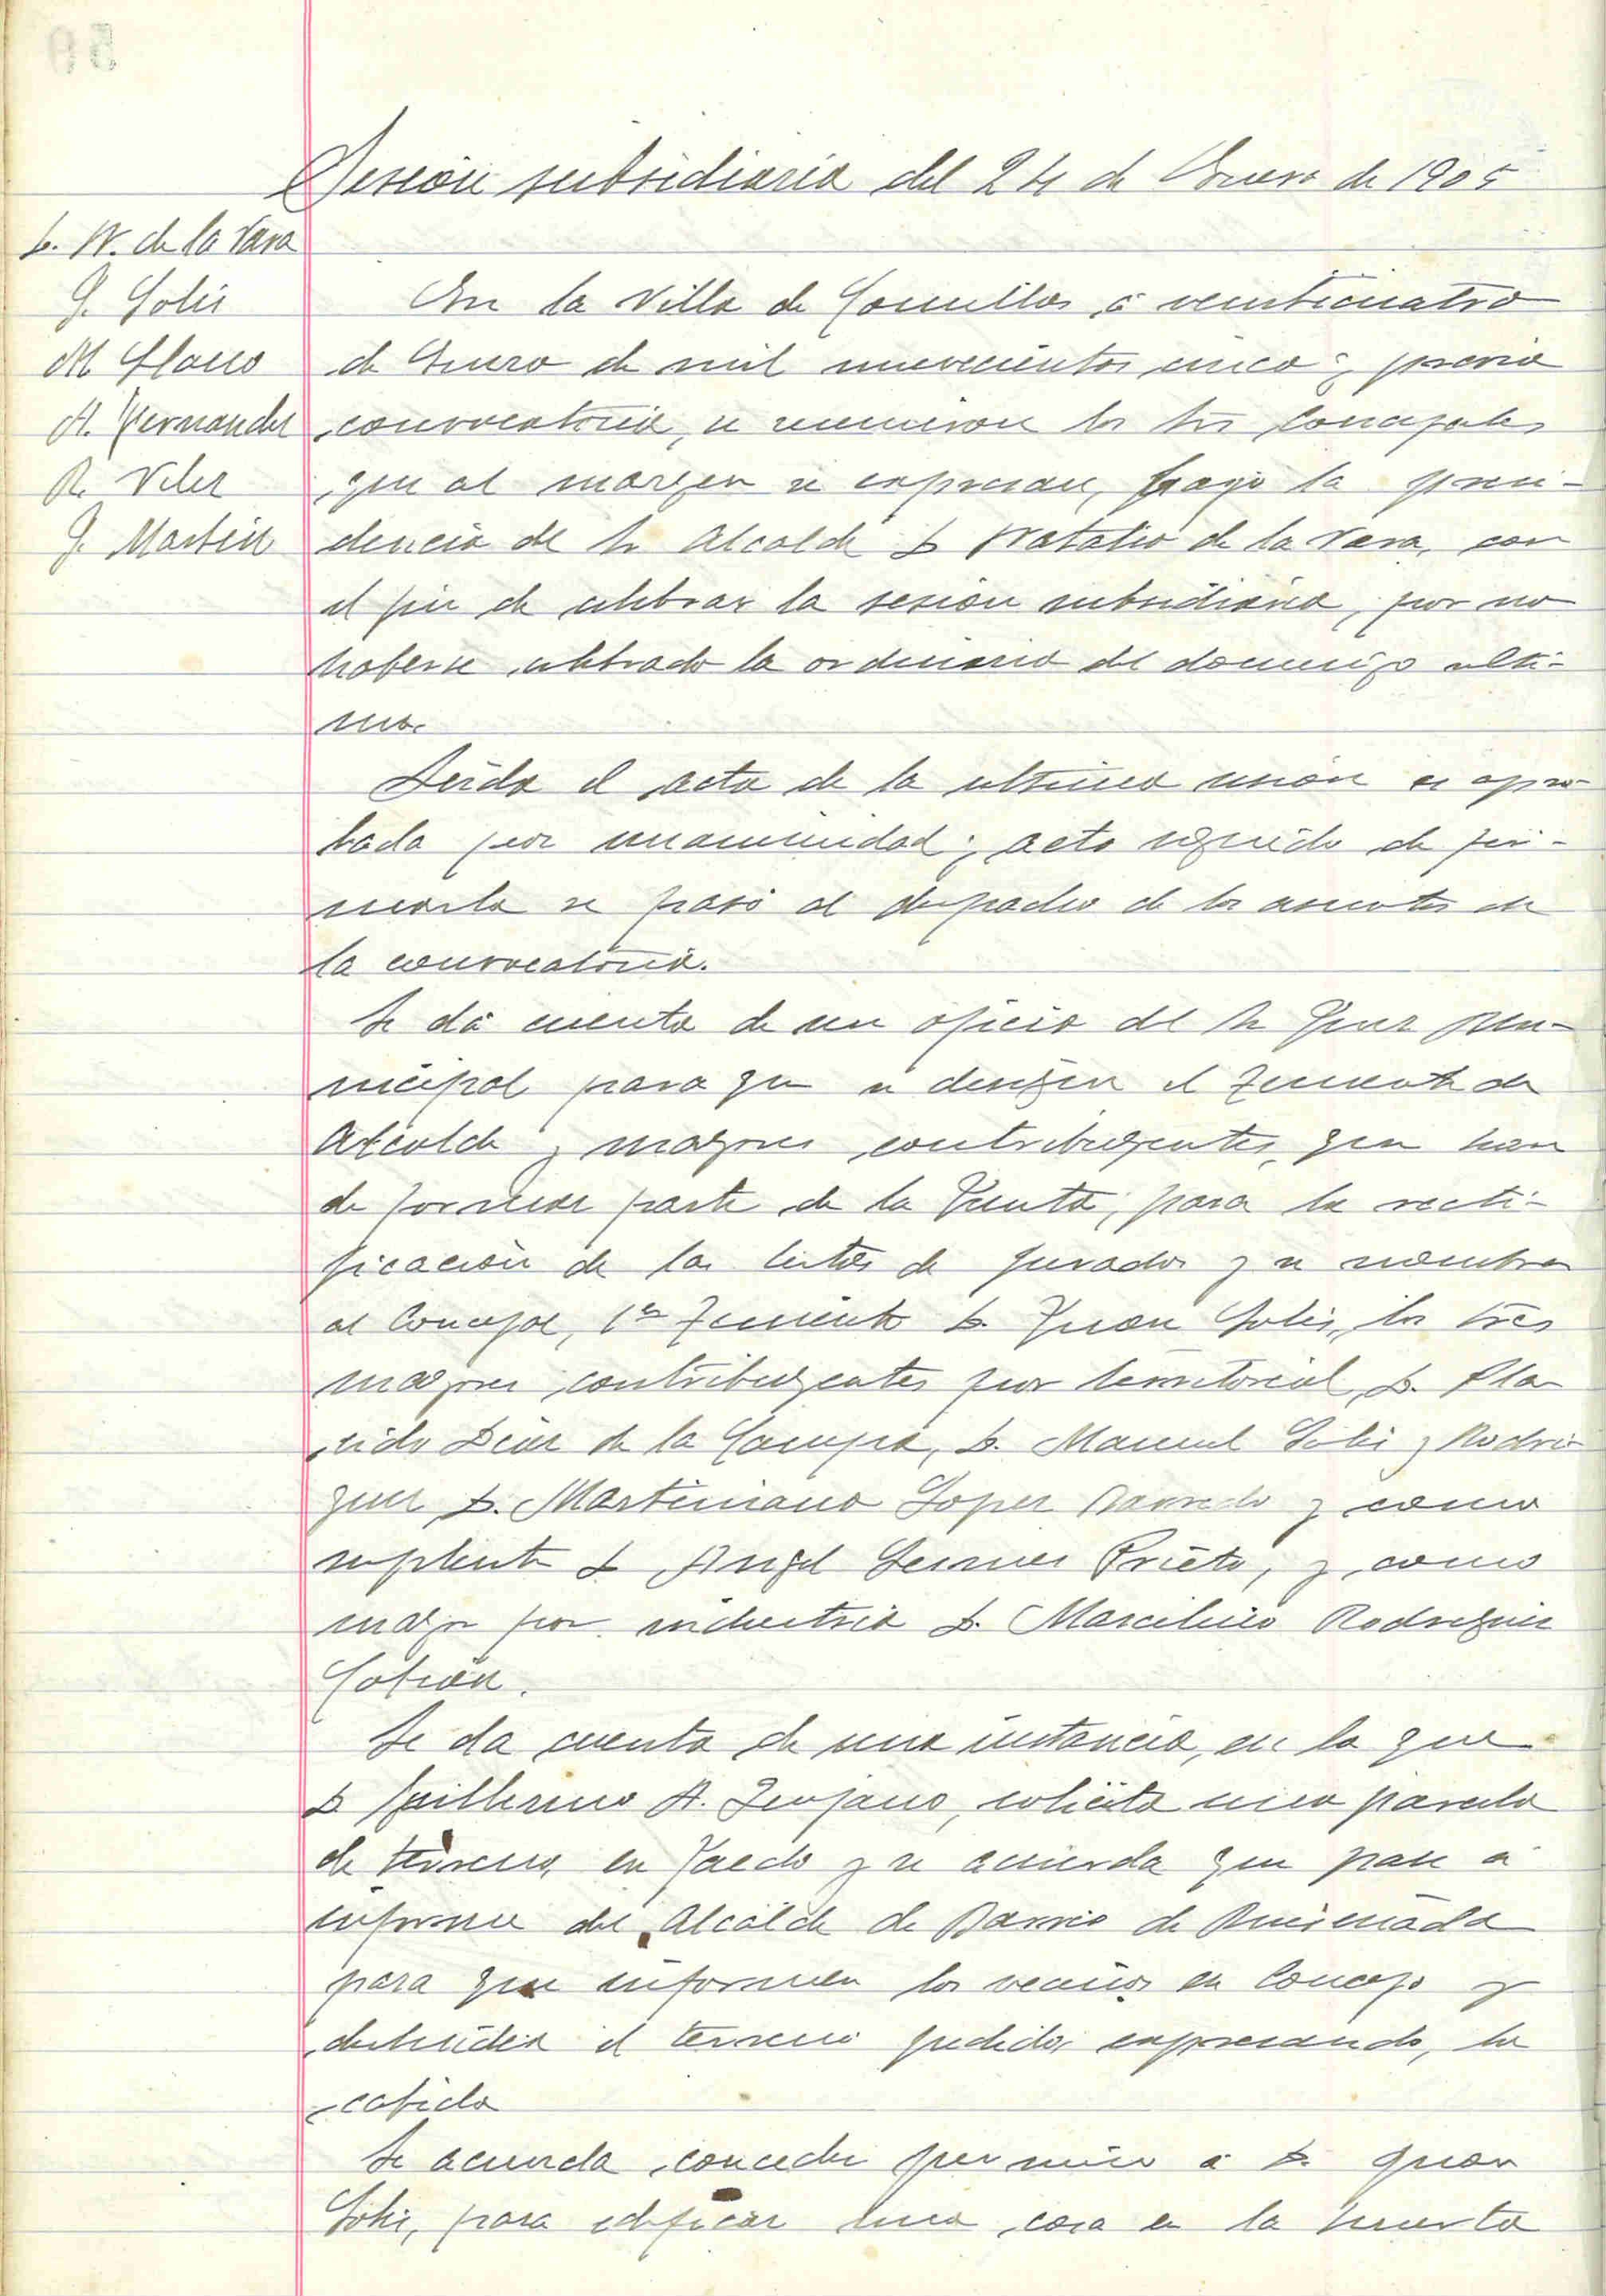 Sesión subsidiaria del 24 de Enero de 1905
D. N. de la Vara
J. Solis
M
A. Fernandez
R. Velez
J. Martin
En la Villa de Comillas á veinticuatro
de Enero de mil novecientos cinco; previa
convocatoria, se reunieron los Srs Concejales
que al margen se expresan, bajo la presi-
dencia del Sr Alcalde D Natalio de la Vara, con
el fin de celebrar la sesión subsidiaria, por no
haberse celebrado la ordinaria del domingo ulti-
mo.
Leida el acta de la ultima sesión es apro-
bada por unanimidad; acto seguido de fir-
marla se pasó al despacho de los asuntos de
la convocatoria.
Se dá cuenta de un oficio del Sr Juez Mu-
nicipal para que se designen el Teniente de
Alcalde y mayores contribuyentes, que han
de formar parte de la Junta, para la recti-
ficación de las listas de Jurados y se nombra
al Concejal, 1er Teniente D. Juan Solis, los tres
mayores contribuyentes por territorial, D. Pla
cido Diaz de la Campa, D. Manuel Solis y Rodri
guez D. Martiniano Lopez y como
suplente D Angel Prieto, y como
mayor por industria D. Marcelino Rodriguez
Se da cuenta de una instancia, en la que
D Guillermo A. solicita una parcela
de terreno, en y se acuerda que pase á
informe del Alcalde de Barrio de Ruiseñada
para que informen los vecinos en Concejo y
deslinden el terreno pedido, expresando, la
cabida
Se acuerda conceder permiso á D. Juan
Solis, para edificar una casa en la huerta